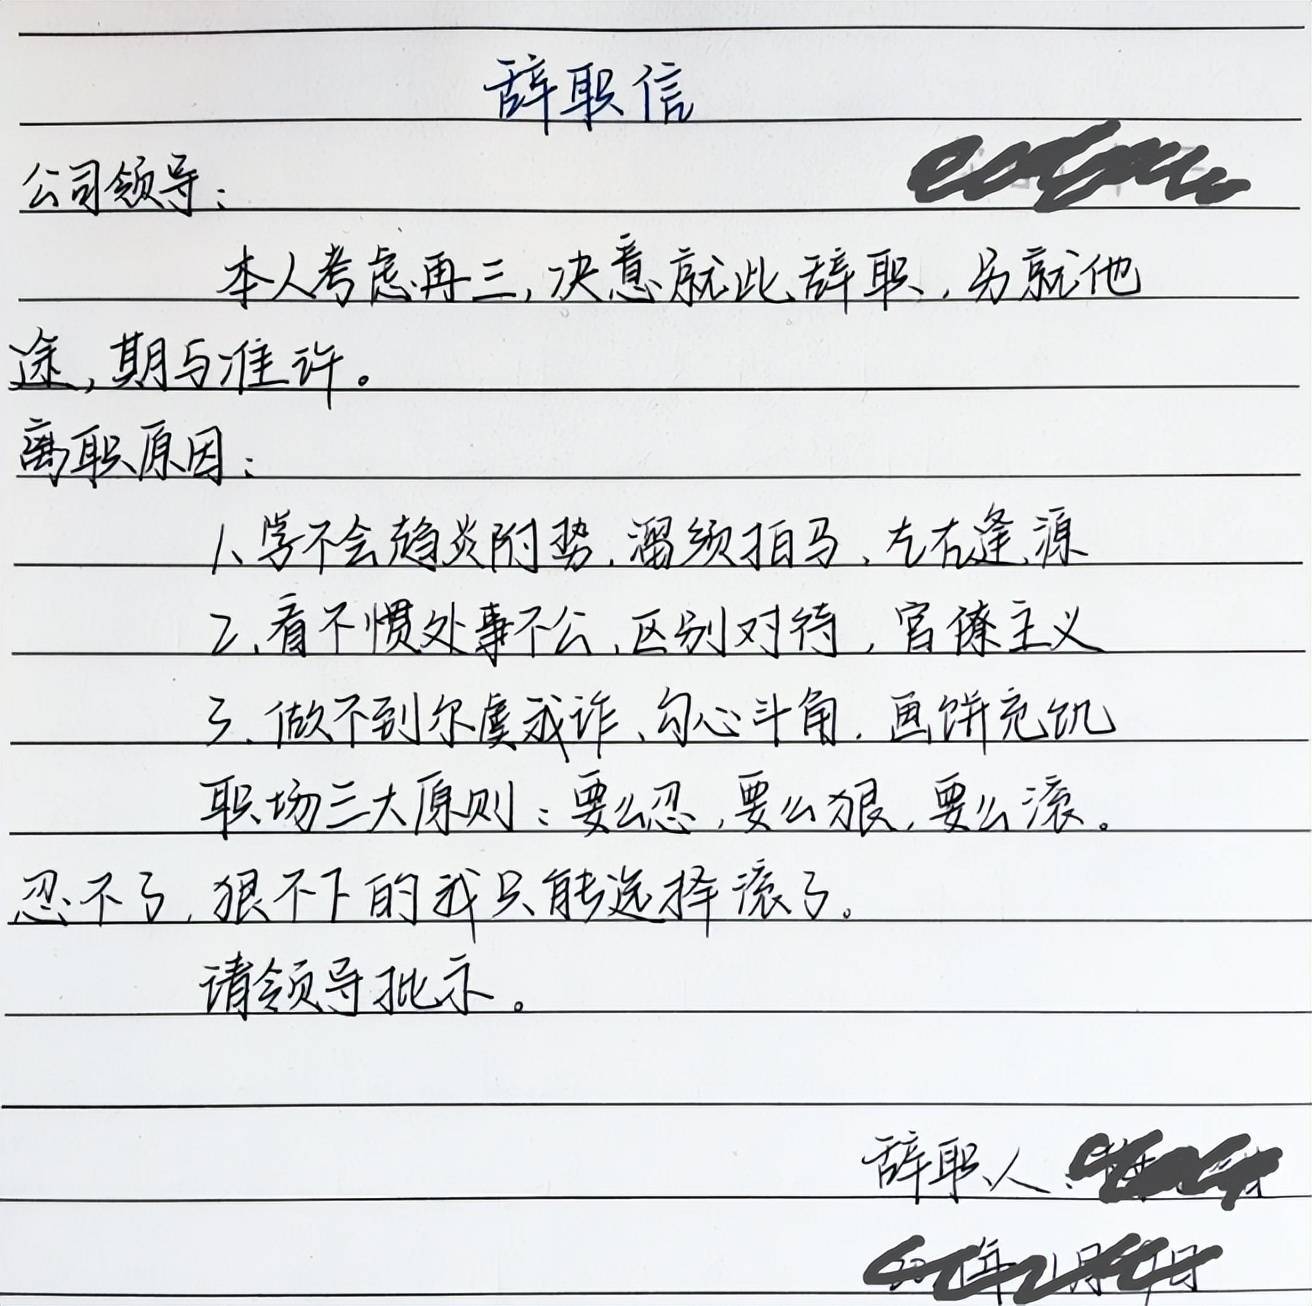 辞职信
公司领导：
本人考虑再三，决意就此辞职，另就他
途，期与准许。
离职原因：
1、学不会趋炎附势、溜须拍马、左右逢源
2、看不惯处事不公、区别对待，官僚主义
3、做不到尔虞我诈、勾心斗角、画饼充饥
职场三大原则：要么忍，要么狠，要么滚。
忍不了，狠不下的我只能选择滚了。
请领导批示。
辞职人：
年 月 日